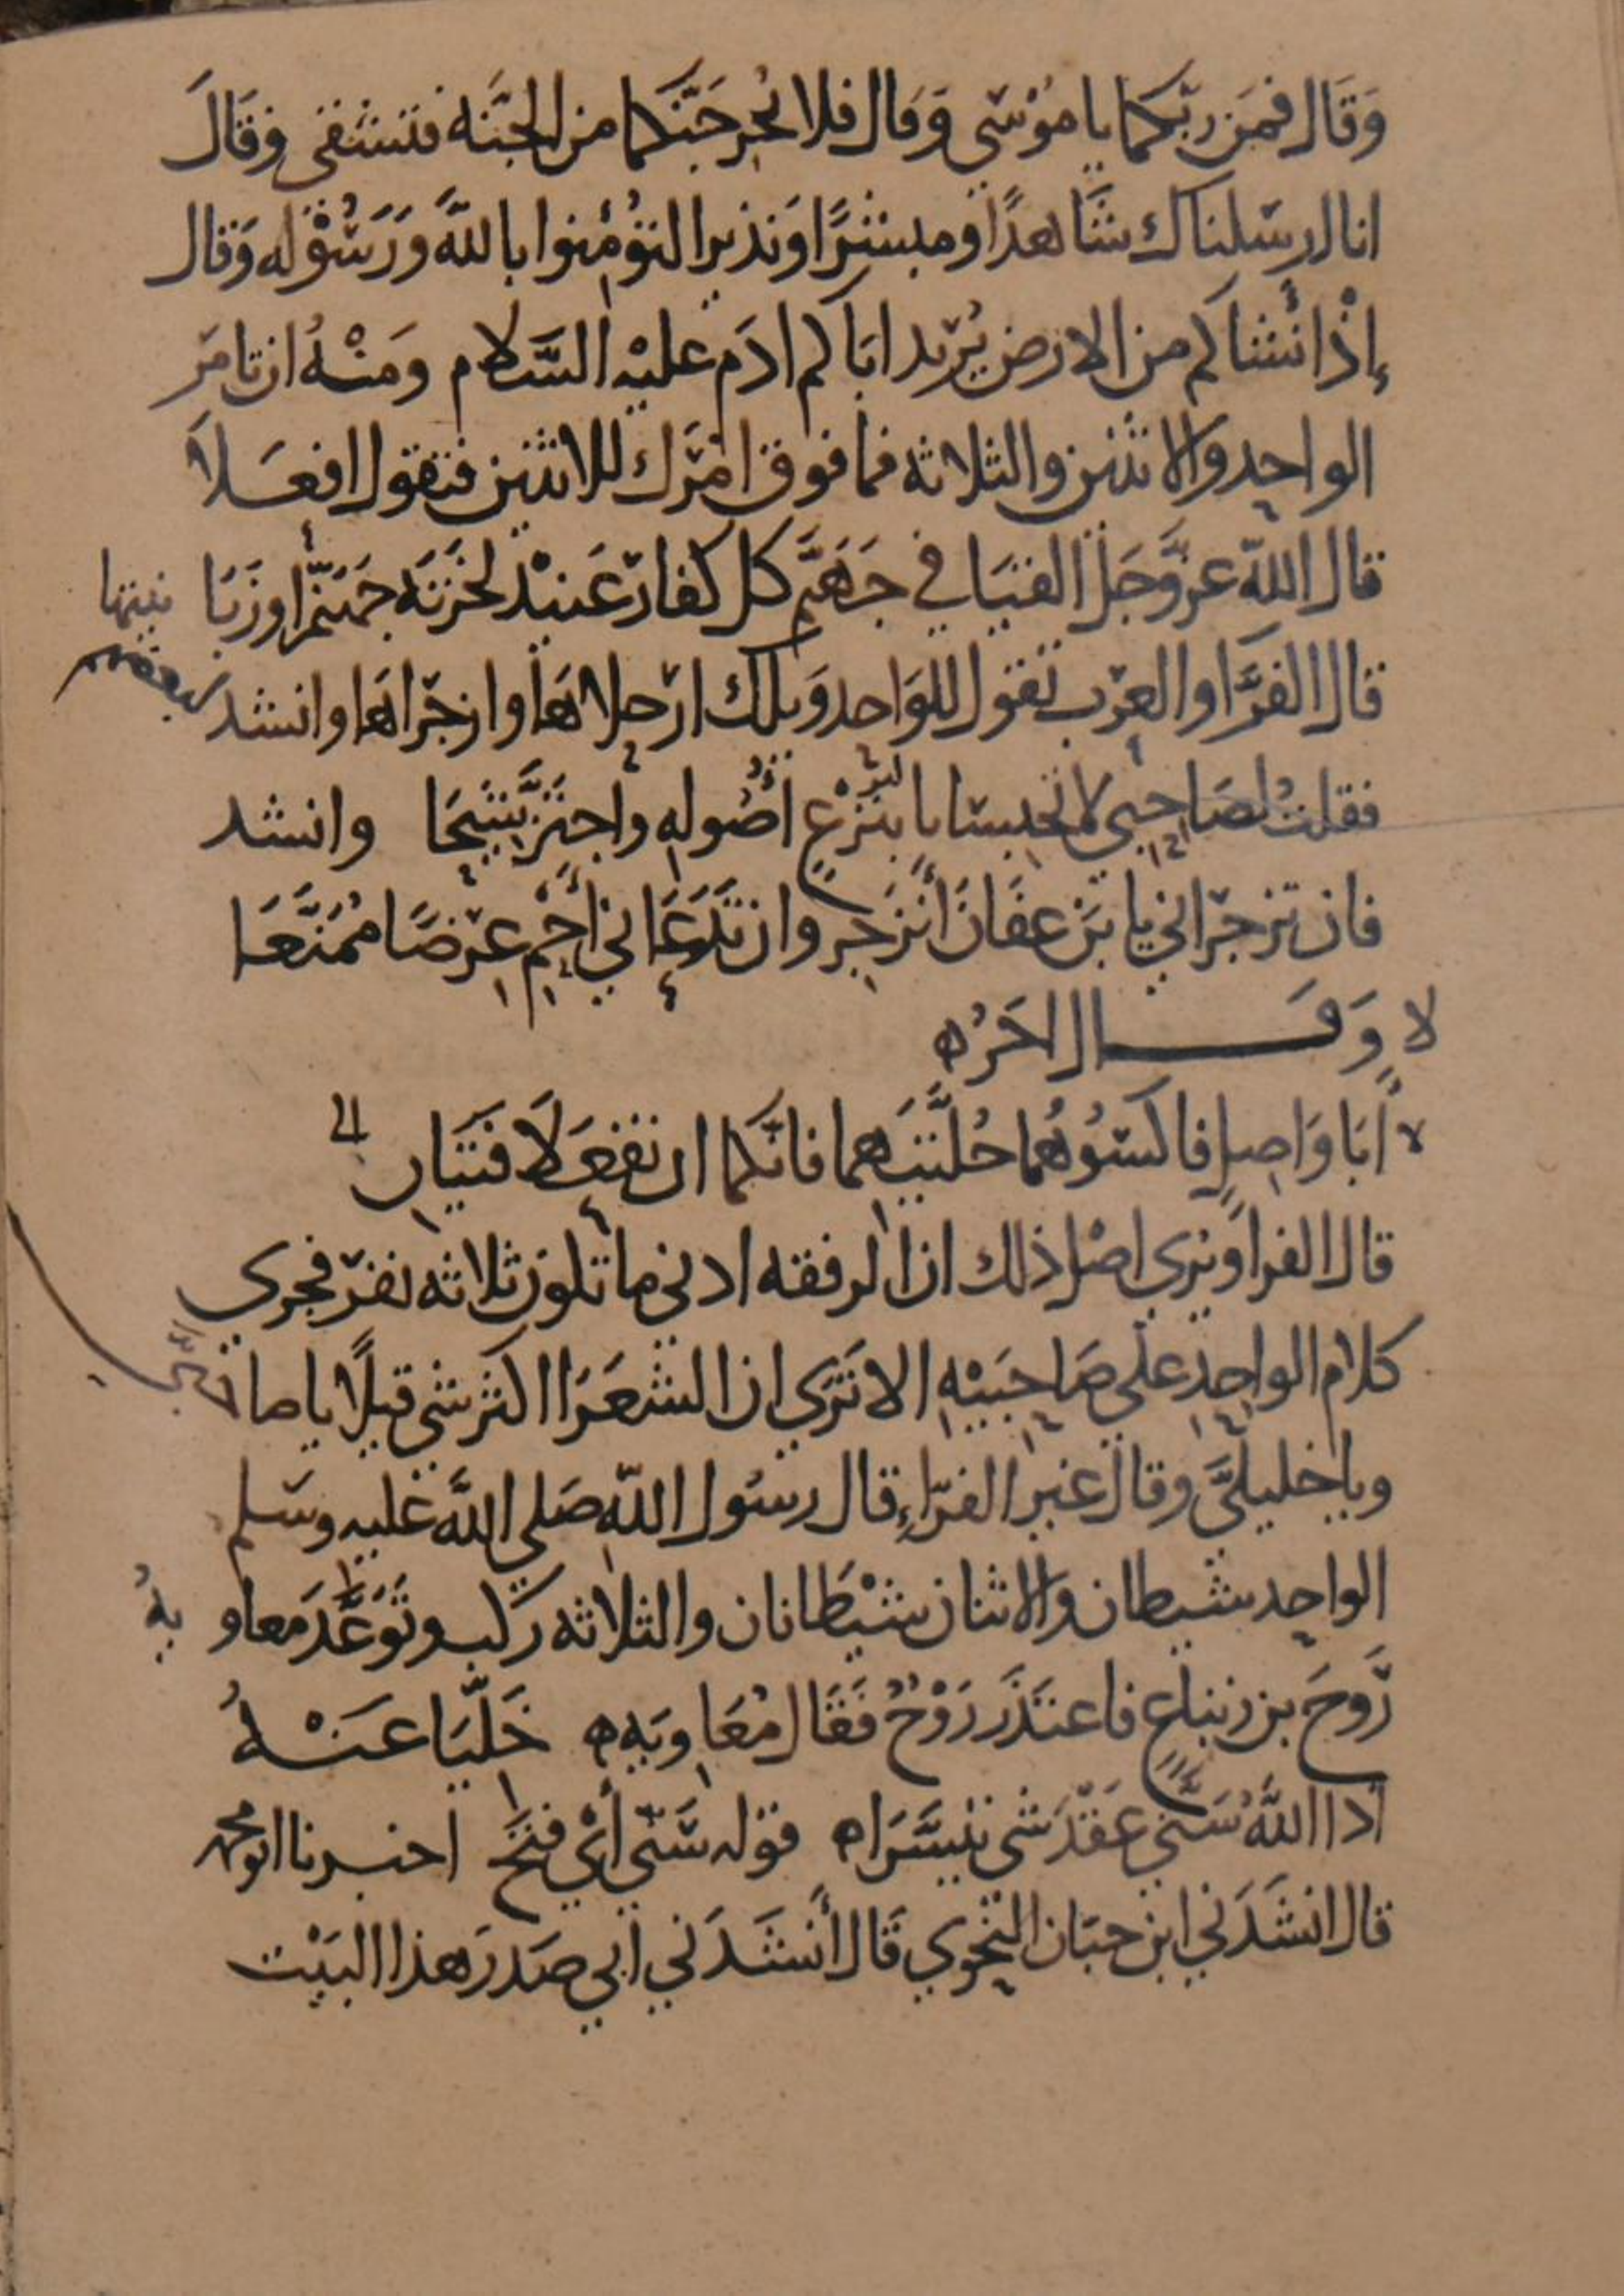 وَقَال فمَن ربّكما يا مُوْسَي وَقال فلا يُخرِجَنّكما من الجنَّة فتشقى وقَالَ
انا ارسَلناك شَاهدًا ومبشرًا ونذيرا لتؤمنوا باللَّه وَرَسُوْله وَقال
إذْ انْشاكم من الارض يُرِيد ابَاكم ادَم عليْه السَّلام ومَنْهُ ان تامَر
الواحِد والاثنين والثلاثه فما فوق امْرَك للاثنين فتقول افعَلاَ
قال اللّه عزَّوجَلّ القيَا في جَهنَّم كل كفار عَنيْد لخزنَة جَهَنَّم او زبَا نيتها
قال الفرَّا والعَرَب تقول للوَاحد وَيلك ارْحلاهَا وازجُراهَا وانشد
فقلتُ لصَاحِبي لا تحبِسَانا بنَزْعِ اصُولهِ واجتزَّ شيحَا وانشد
فان تزجُراني يا بَن عفَانَ أنزَجِر وان تَدَعَاني أحْمِ عِرْضًا مُمَنَّعَا
لا وَقَـــال اخَرُ ه
أبَا وَاصِلٍ فاكسُوْهُما حُلَّتَيهما فانَّكما ان تفعَلاَ فتَيَانِ الى
قال الفرا ونرى اصْل ذلك ان الرفقه ادنى ما تكون ثلاثه نفَر فجرى
كلام الواحِد علَى صَاحِبَيْهِ الا تَرَي ان الشعَرَا اكثر شي قيلاً يا صاحبَيَّ
ويا خليلَيَّ وقال غير الفرّاءِ قال رسُول اللّه صَلى اللَّه عَليه وسَلم
الواحِد شيطان والاثنان شيْطَانان والثلاثه رَكب وتَوَعَّدَ معاو يةُ
رَوحَ بن زنباعٍ فاعتَذَر رَوْحٌ فَقَال مُعَاويَه ه خَلّيَا عَنْهُ
اذا اللَّهُ سَنَّي عَقْدَ شَى تيسَّرَا ه قوله سَنَّى أيْ فَتَحَ اخبرنا ابو محمد
قال انشَدَني ابن حبَان النحْوي قَال أنشَدَني ابي صَدر هذا البَيْت